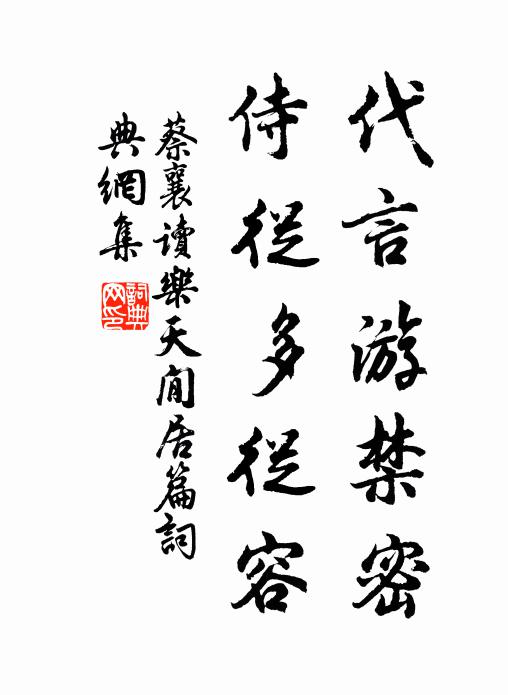 代言游禁密
侍從多從容
蔡襄讀樂天閒居篇詞
典網集
詞典
网印